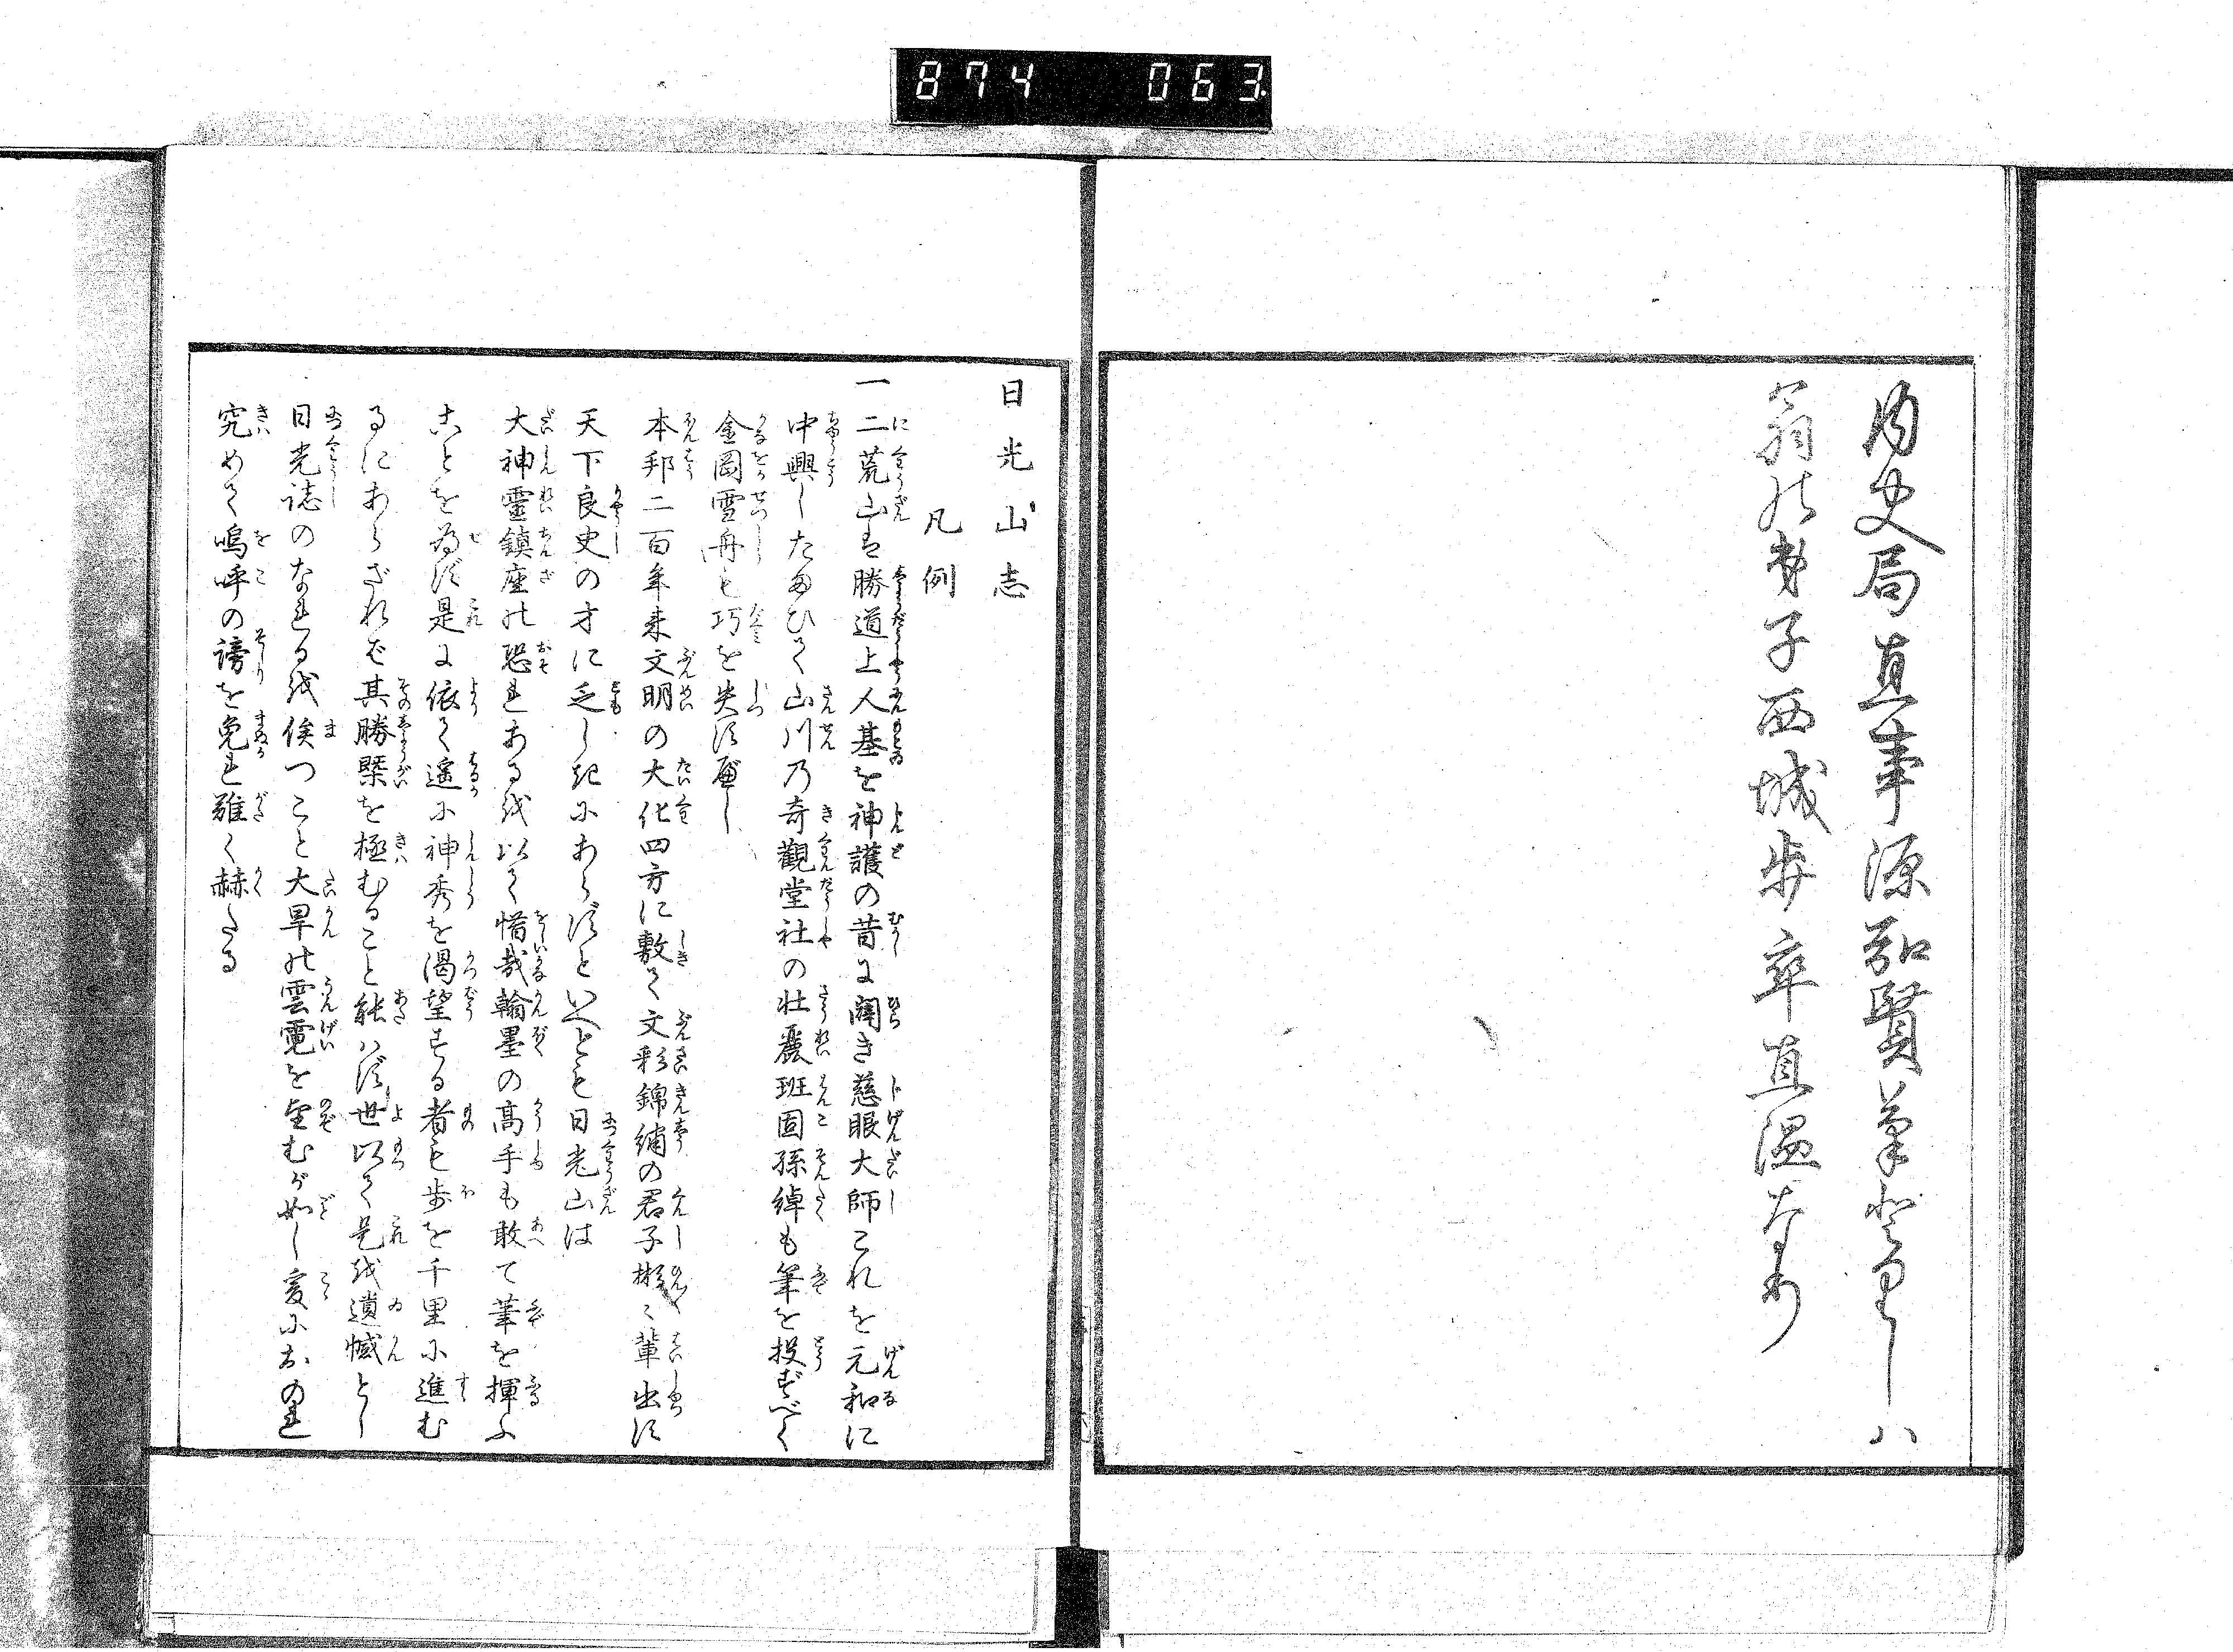 874 063
内史局直事源弘賢筆とりしハ
翁の弟子西城歩卒直温なり
日光山志
凡例
一二荒山は勝道上人基を神護の昔に闢き慈眼大師これを元和に
中興したまひて山川乃奇觀堂社の壮麗班固孫綽も筆を投ずべく
金岡雪舟も巧を失す べし
本邦二百年来文明の大化四方に敷て文彩錦繍の君子彬〻輩出す
天下良史の才に乏しきにあらずといへども日光山は
大神靈鎮座の恐れあるを以て惜哉翰墨の高手も敢て筆を揮ふ
ことを為ず是に依て遙に神秀を渇望する者も歩を千里に進む
るにあらざれば其勝槩を極むること能ハず世以て是を遺憾とし
日光誌のなれるを俟つこと大旱の雲霓を望むが如し爰におのれ
究めて嗚呼の謗を免れ難く赫たる